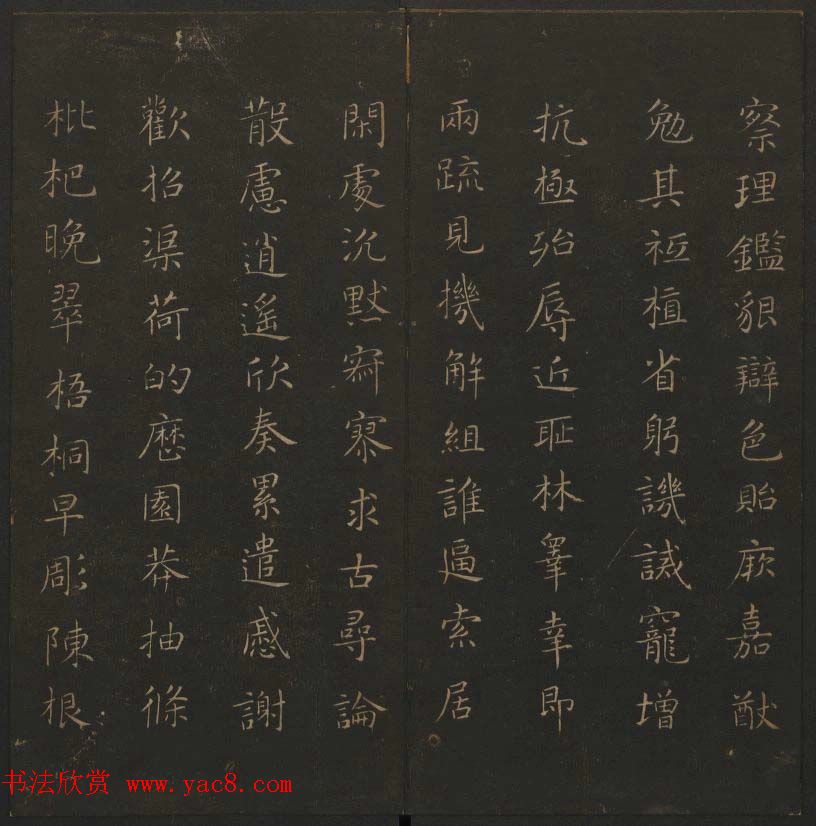 察理鑑貌辯色貽厥嘉猷
勉其祗植省躬譏誡寵增
抗極殆辱近耻林睾幸即
兩疏見機解組誰逼索居
閑處沉默寂寥求古尋論
散慮逍遙欣奏累遣慼謝
歡招渠荷的歷園莽抽條
枇杷晚翠梧桐早彫陳根
书法欣赏 www.yac8.com